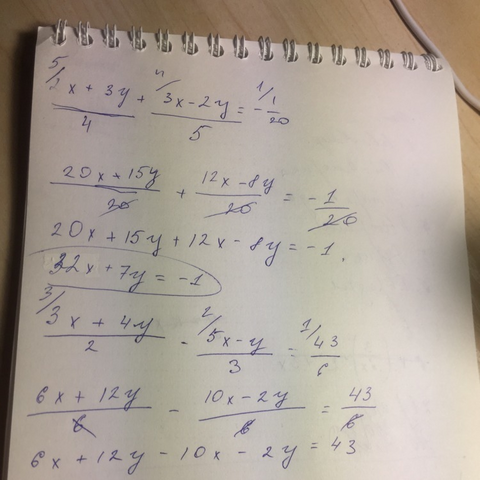 5/ 2x + 3y / 4 + 4/ 3x - 2y / 5 = - 1/ 1 / 20
20x + 15y / 20 + 12x - 8y / 20 = - 1 / 20
20x + 15y + 12x - 8y = -1.
32x + 7y = -1
3/ 3x + 4y / 2 - 2/ 5x - y / 3 = 1/ 43 / 6
6x + 12y / 6 - 10x - 2y / 6 = 43 / 6
6x + 12y - 10x - 2y = 43